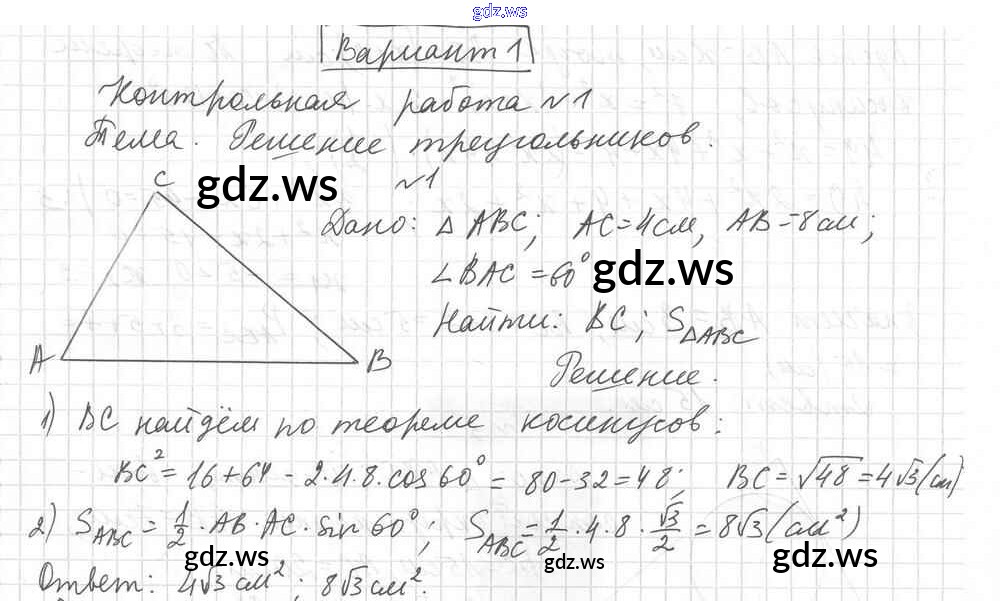 gdz.ws
Вариант 1
Контрольная работа №1
Тема. Решение треугольников.
№1
C
gdz.ws
Дано: △ ABC; AC = 4 см, AB = 8 см;
∠BAC = 60°
gdz.ws
Найти: BC; S△ABC
A
B
Решение.
1) BC найдём по теореме косинусов:
BC² = 16 + 64 - 2·4·8·cos 60° = 80 - 32 = 48; BC = √48 = 4√3 (см)
2) S_ABC = 1/2 · AB · AC · sin 60°; S_ABC = 1/2 · 4 · 8 · √3/2 = 8√3 (см²)
gdz.ws
gdz.ws
gdz.ws
Ответ: 4√3 см²; 8√3 см².